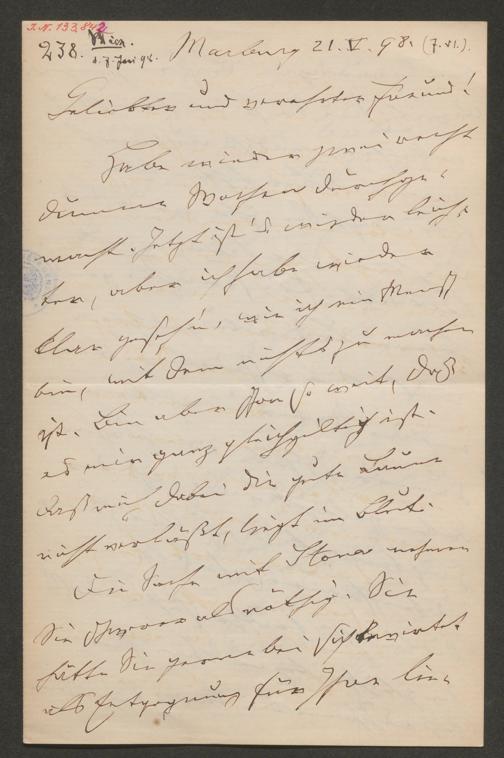 I.N. 133.842
238. Wien d. 7. Juni 98.
Marburg 21. V. 98. (7. VI.).
Geliebter und verehrter Freund!
Habe wieder zwei recht
dumme Wochen durchge-
macht. Jetzt ist's wieder leich-
ter, aber ich habe wieder
klar geseh'n, wie ich ein Mensch
bin, mit dem nichts zu machen
ist. Bin aber schon so weit, daß
es mir ganz gleichgiltig ist.
Daß mich dabei die gute Laune
nicht verläßt, liegt im Blut.
Die Sache mit Stona nehmen
Sie schwerer als nöthig. Sie
hätte Sie gerne bei sich bewirtet
als Entgegnung für Ihren lie-